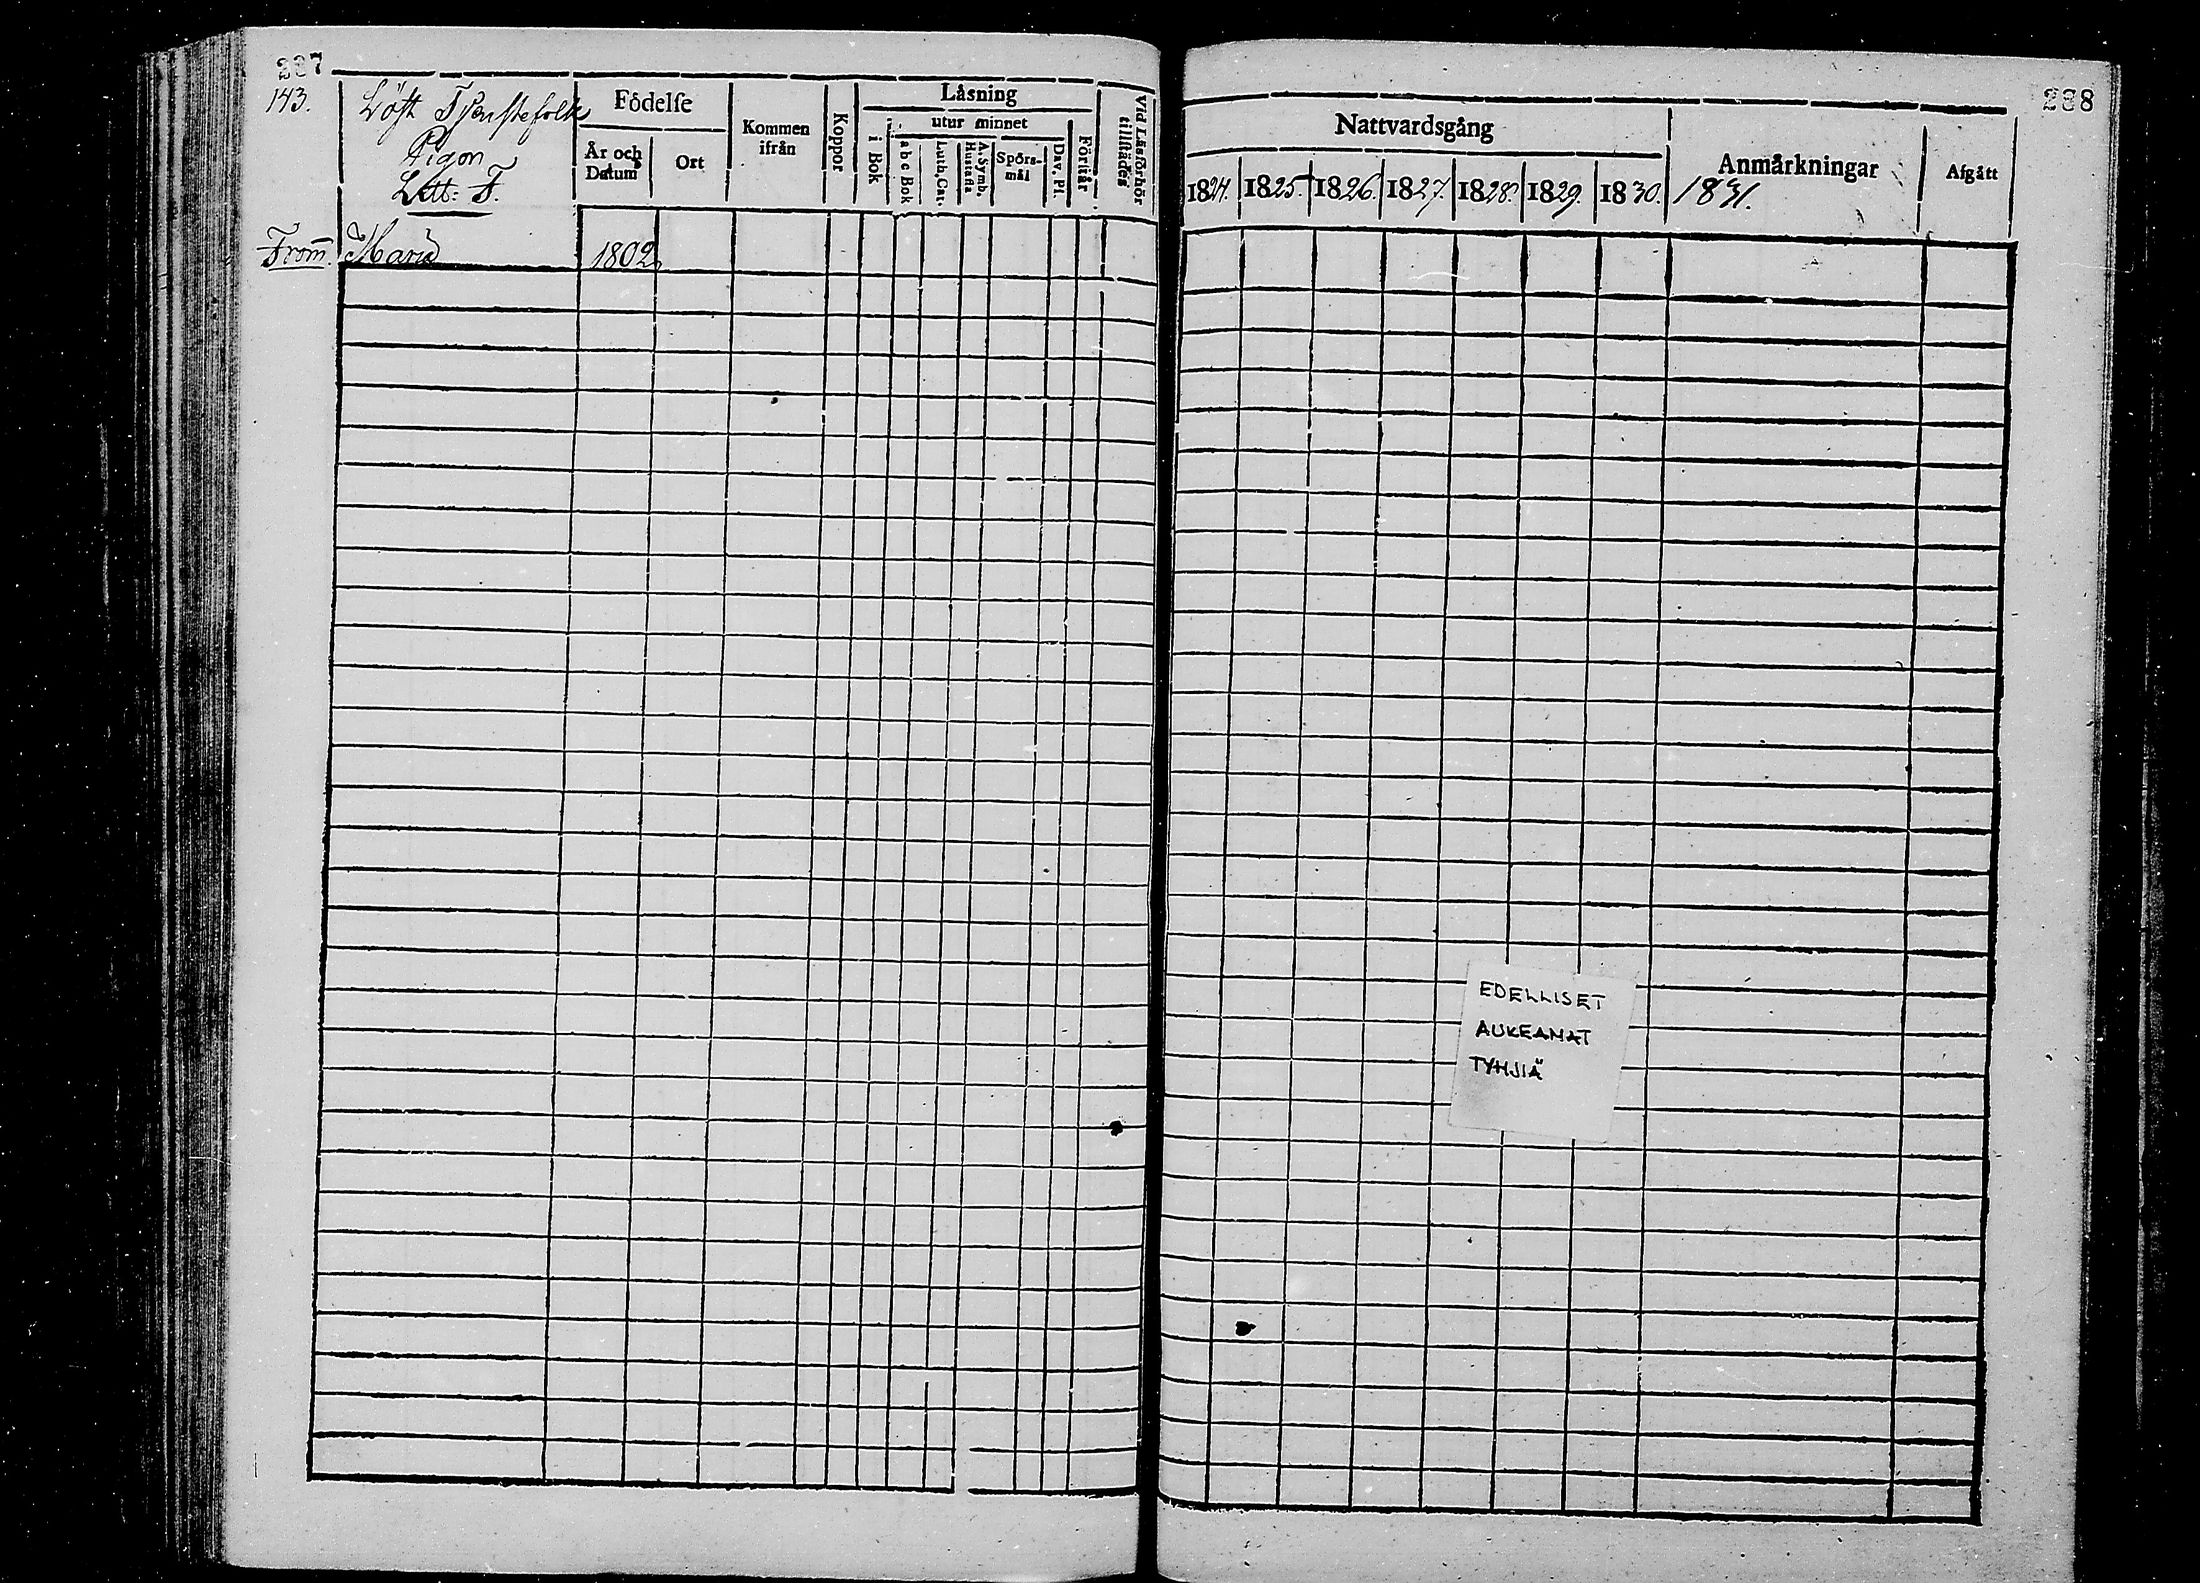 287
143.
Löst Tjenstefolk
Pigor
Litt: F.
Födelse
År och Datum
Ort
Kommen ifrån
Koppor
Läsning
utur minnet
i Bok
a b c Bok
Luth. Cat.
A. Symb. Hustafla
Spörs-
mål
Dav. Ps.
Förstår
Vid Läsförhör tillstädes
From̄. Maria 1802
288
Nattvardsgång
1824. 1825. 1826. 1827. 1828. 1829. 1830.
Anmärkningar
1831.
Afgått
EDELLISET
AUKEAMAT
TYHJIÄ